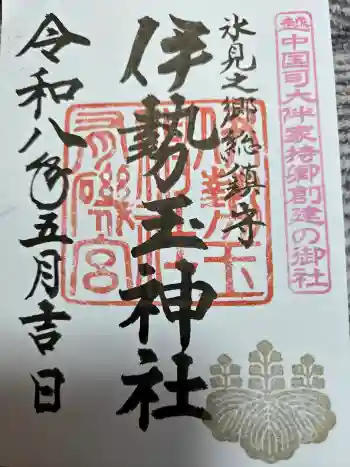 越中国司大伴家持卿創建の御社
氷見之郷総鎮守
伊勢玉神社
有磯宮
令和八年五月吉日